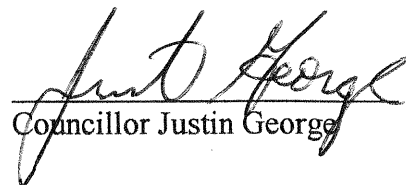 Justin George
Councillor Justin George